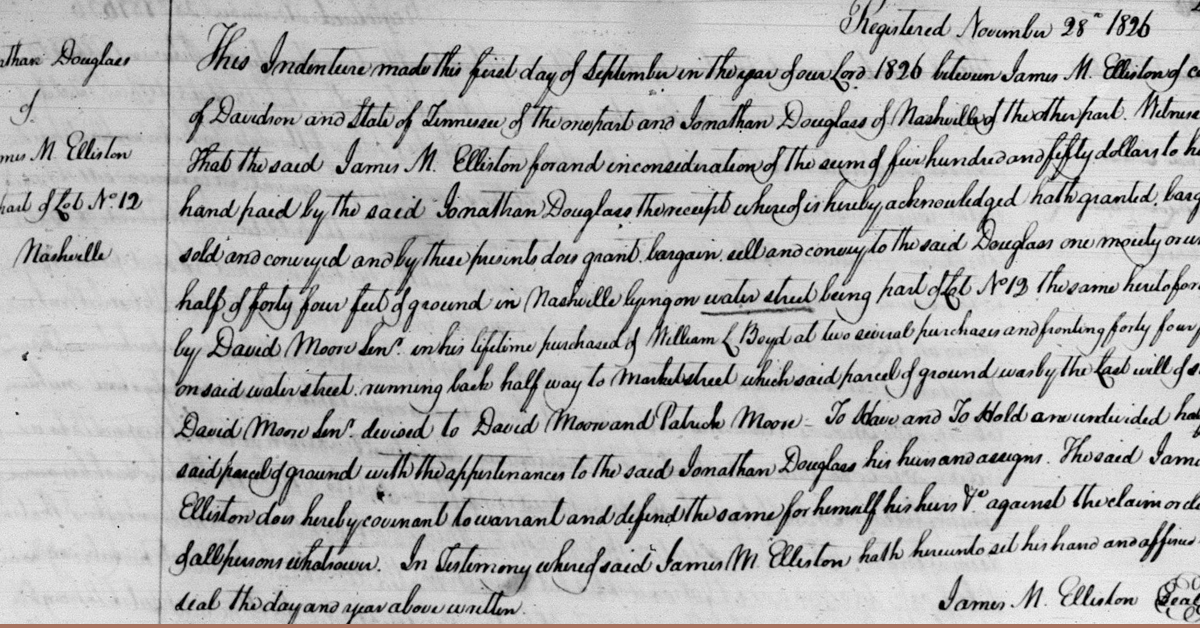 Registered November 28th 1826
This Indenture made this first day of September in the year of our Lord 1826 between James M. Elliston of co
of Davidson and State of Tennessee of the one part and Jonathan Douglass of Nashville of the other part. Witness
That the said James M. Elliston for and in consideration of the sum of five hundred and fifty dollars to h
hand paid by the said Jonathan Douglass the receipt whereof is hereby acknowledged hath granted, barg
sold and conveyed and by these presents does grant, bargain, sell and convey to the said Douglass one moiety or
half of forty four feet of ground in Nashville lying on water street being part of Lot No 12 the same heretofor
by David Moore Senr. in his lifetime purchased of William L Boyd at two several purchases and fronting forty four
on said water street, running back half way to Market street which said parcel of ground was by the Last will of s
David Moore Senr. devised to David Moore and Patrick Moore - To Have and To Hold an undivided hal
said parcel of ground with the appertenances to the said Jonathan Douglass his heirs and assigns. The said Jam
Elliston does hereby covenant to warrant and defend the same for himself his heirs &c against the claim or d
of all persons whatsoever. In Testimony whereof said James M. Elliston hath hereunto set his hand and affixed
seal the day and year above written.
James M. Elliston Seal
nathan Douglass
of
mes M Elliston
part of Lot No 12
Nashville